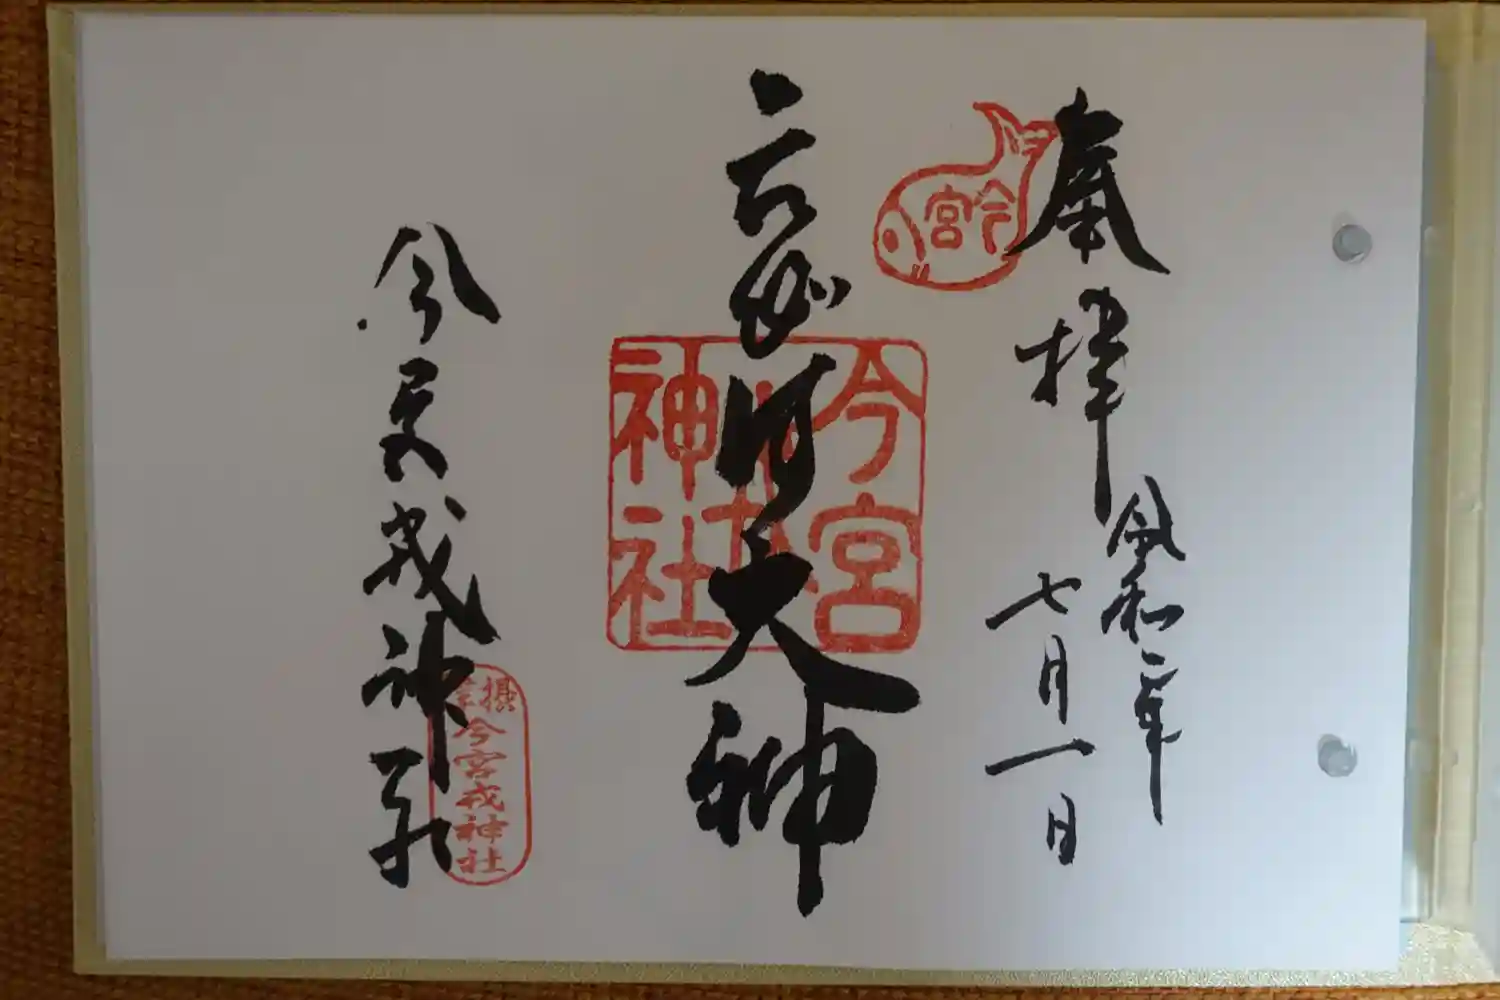 奉拝
令和二年
七月一日
今宮
河大神
今宮
神社
今宮戎神社
摂
今宮戎神社